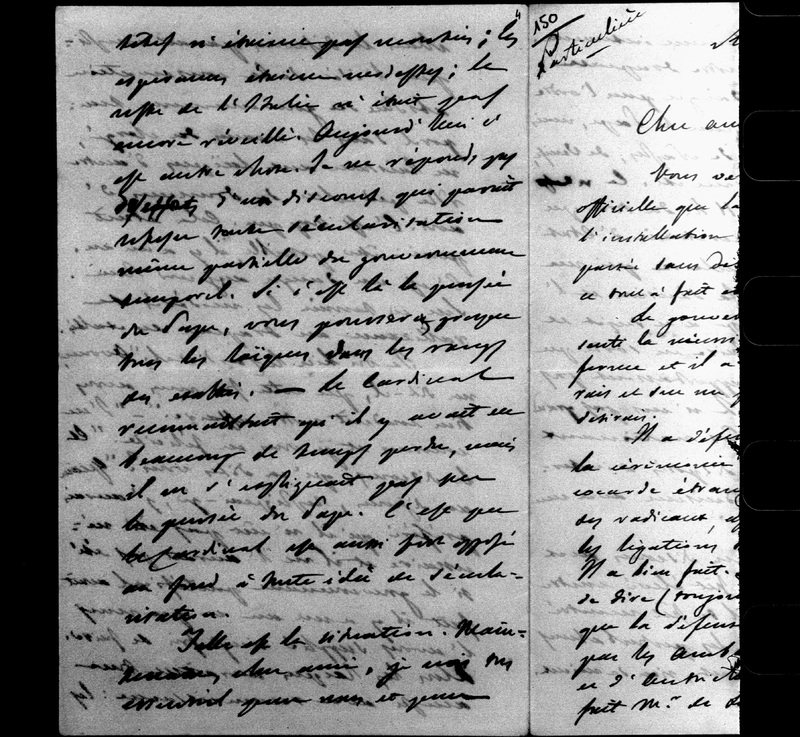 n'étaient pas montées ; les
espérances étaient modestes ; le
reste de l'Italie n'était pas
encore réveillé. Aujourd'hui c'
est autre chose. Je ne réponds pas
d'un discours qui paraît
refuser toute sécularisation
même partielle du gouvernement
temporel. Si c'est là la pensée
du Pape, vous pousserez presque
tous les laïques dans les rangs
des exaltés. — Le Cardinal
reconnaissait qu'il y avait eu
beaucoup de temps perdu, mais
il ne s'expliquait pas sur
la pensée du Pape. C'est que
le Cardinal est aussi fort opposé
au fond à toute idée de sécula=
risation.
Telle est la situation. Main=
tenant, cher ami, je
essentiel pour nous et pour
150
Particulière
Cher am
Vous ve
officielle que la
l'installation
passée sans dé
ce tout à fait
de gouver
toute la
ference et il a
rais et
désirais.
Il a défe
la cérémonie
cocarde étran
des radicaux,
les légations
Il a bien fait.
de dire (toujou
que la défens
par les amba
et d'Autriche
fait Mr. de